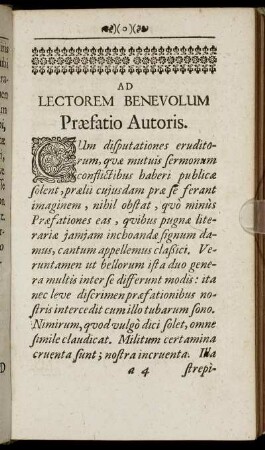 )(o)(
AD
LECTOREM BENEVOLUM
Præfatio Autoris.
CUm disputationes erudito-
rum, qvæ mutuis sermonum
conflictibus haberi publicæ
solent, prælii cujusdam præ se ferant
imaginem, nihil obstat, qvô minùs
Præfationes eas, qvibus pugnæ lite-
rariæ jamjam inchoandæ signum da-
mus, cantum appellemus classici. Ve-
runtamen ut bellorum ista duo gene-
ra multis inter se differunt modis: ita
nec leve discrimen præfationibus no-
stris intercedit cum illo tubarum sono.
Nimirum, qvod vulgò dici solet, omne
simile claudicat. Militum certamina
cruenta sunt; nostra incruenta. Illa
a 4 strepi-